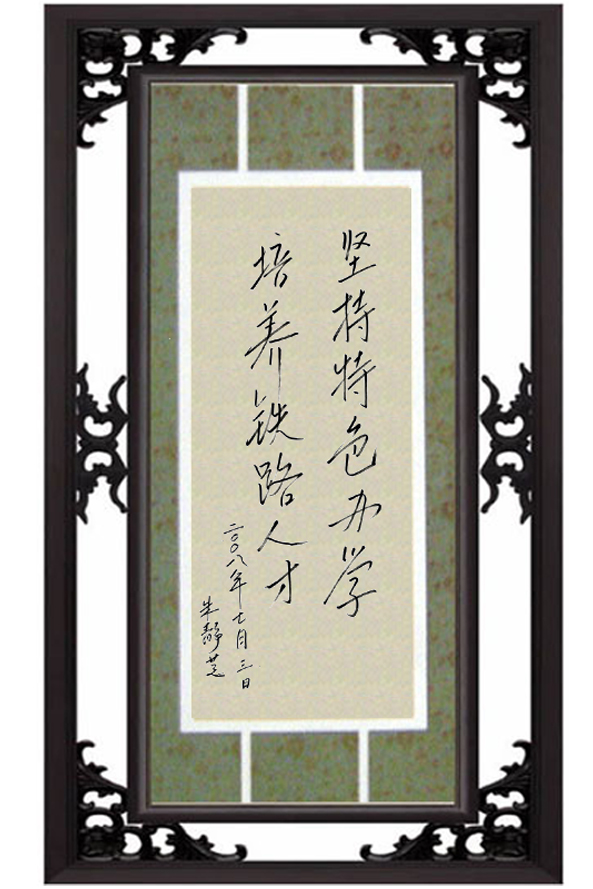 坚持特色办学
培养铁路人才
二〇〇八年七月三日
朱静芝